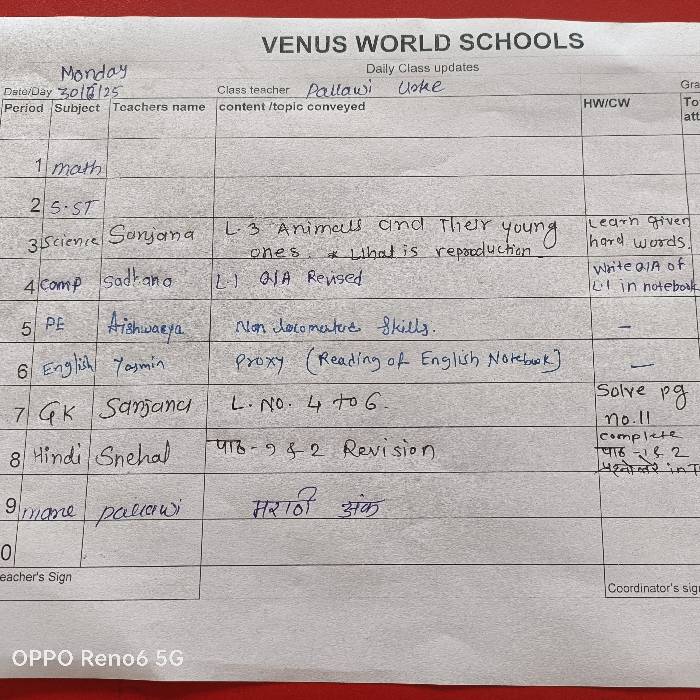 VENUS WORLD SCHOOLS
Daily Class updates
Monday
Date/Day 30/6/25 Class teacher Pallawi Uske Gra
Period Subject Teachers name content /topic conveyed HW/CW To
att
1 math
2 S.ST
3 Science Sanjana L.3 Animals and Their young Learn given
ones. * What is reproduction hard words.
4 comp Sadhana L.1 Q/A Revised Write Q/A of
L.1 in notebook
5 PE Aishwarya Non locomotore Skills. —
6 English Yasmin Proxy (Reading of English Notebook) —
7 GK Sanjana L. NO. 4 to 6. Solve pg
no.11
8 Hindi Snehal पाठ - १ & 2 Revision complete
पाठ - १ & 2
प्रश्नोत्तरे in T
9 Pallawi मराठी अंक
0
eacher's Sign
Coordinator's sig
OPPO Reno6 5G